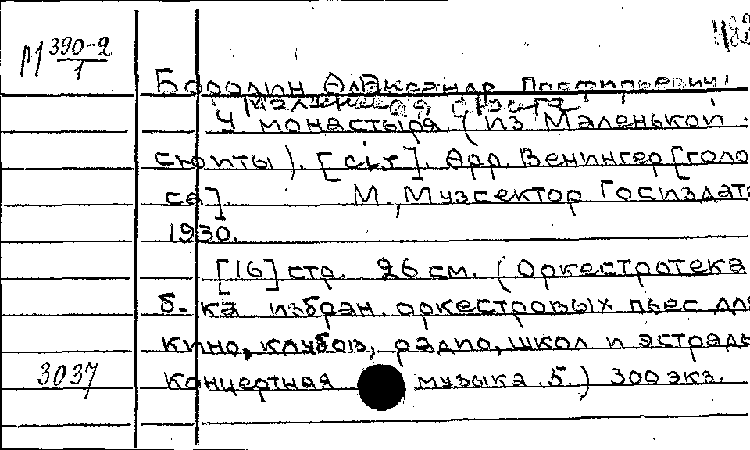 М 390-2
1
Бородин Александр Порфирьевич.
Маленькая сюита
У монастыря (из Маленькой
сюиты). [сіт]. Арр. Венингер [голо
са]. М., Музсектор Госиздат
1930.
[16] стр. 26 см. (Оркестротека
б-ка избран. оркестровых пьес для
кино, клубов, радио, школ и эстрады
3037 Концертная музыка 5.) 300 экз.